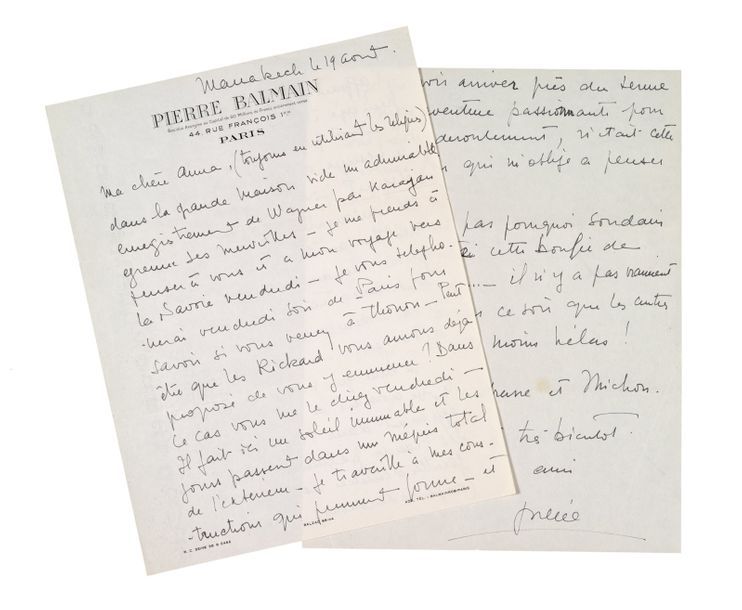 Marrakech le 19 aout.
PIERRE BALMAIN
Société Anonyme au Capital de 60 Millions de Francs entièrement versés
44, RUE FRANÇOIS 1ER
PARIS
Ma chère Anna, (toujours en utilisant les reliques)
dans la grande maison vide un admirable
enregistrement de Wagner par Karajan
egrenne ses merveilles — je me prends à
penser à vous et a mon voyage vers
la Savoie vendredi — Je vous telepho-
-nerai vendredi soir de Paris pour
savoir si vous venez à Thonon — Peut
être que les Rickard vous auront déjà
proposé de vous y emmener ? Dans
ce cas vous me le direz vendredi —
Il fait ici un soleil immuable et les
jours passent dans un mépris total
de l'exterieur — Je travaille à mes cons-
-tructions qui prennent forme — et
R. C. SEINE
BALZAC
ADR. TEL. : BALMAINROB-PARIS
voir arriver près du terme
aventure passionnante pour
deroulement, n'était cette
qui m'oblige a penser
pas pourquoi soudain
cette bouffée de
il n'y a pas vraiment
ce soir que les autres
moins hélas !
et Michon.
très bientot.
ami